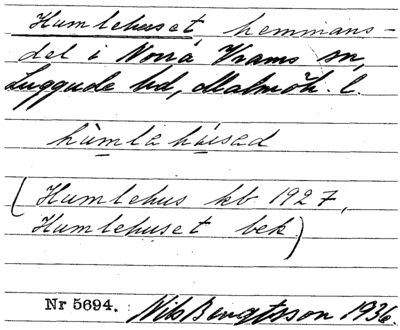 Humlehuset, hemmans-
del i Norra Vrams sn,
Luggude hd, Malmöh. l.
hùmlahúsad
(Humlehus kb 1927,
Humlehuset bek)
Nr 5694. Nils Bengtsson 1936.